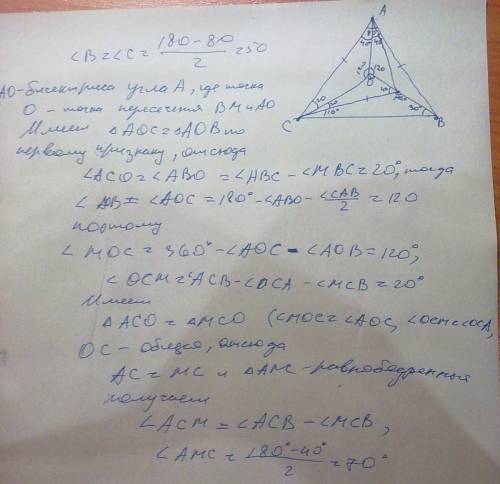 ∠B=∠C= (180-80)/2 =50
AO-биссектриса угла A, где точка
O - точка пересечения BM и AO
Имеем △AOC=△AOB по
первому признаку, отсюда
∠ACO=∠ABO = ∠ABC - ∠MBC=20°, тогда
∠AOB = ∠AOC = 180° - ∠ABO - ∠CAB/2 = 120
поэтому
∠MOC = 360° - ∠AOC - ∠AOB = 120°,
∠OCM = ∠ACB - ∠OCA - ∠MCB = 20°
Имеем
△ACO = △MCO (∠MOC = ∠AOC, ∠OCM = ∠OCA,
OC - общая, отсюда
AC = MC и △AMC - равнобедренный
получаем
∠ACM = ∠ACB - ∠MCB,
∠AMC = (180° - 40°)/2 = 70°
A
120
120
O
20
20
10°
C
B